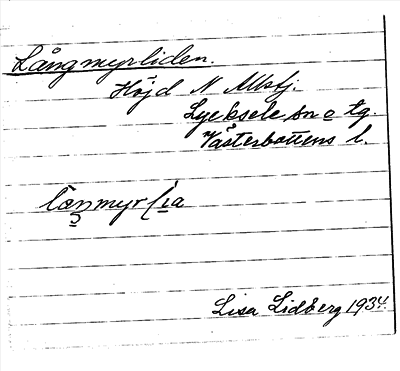 Långmyrliden.
Höjd N
Lycksele sn o tg.
Västerbottens l.
Lisa Lidberg 1934.